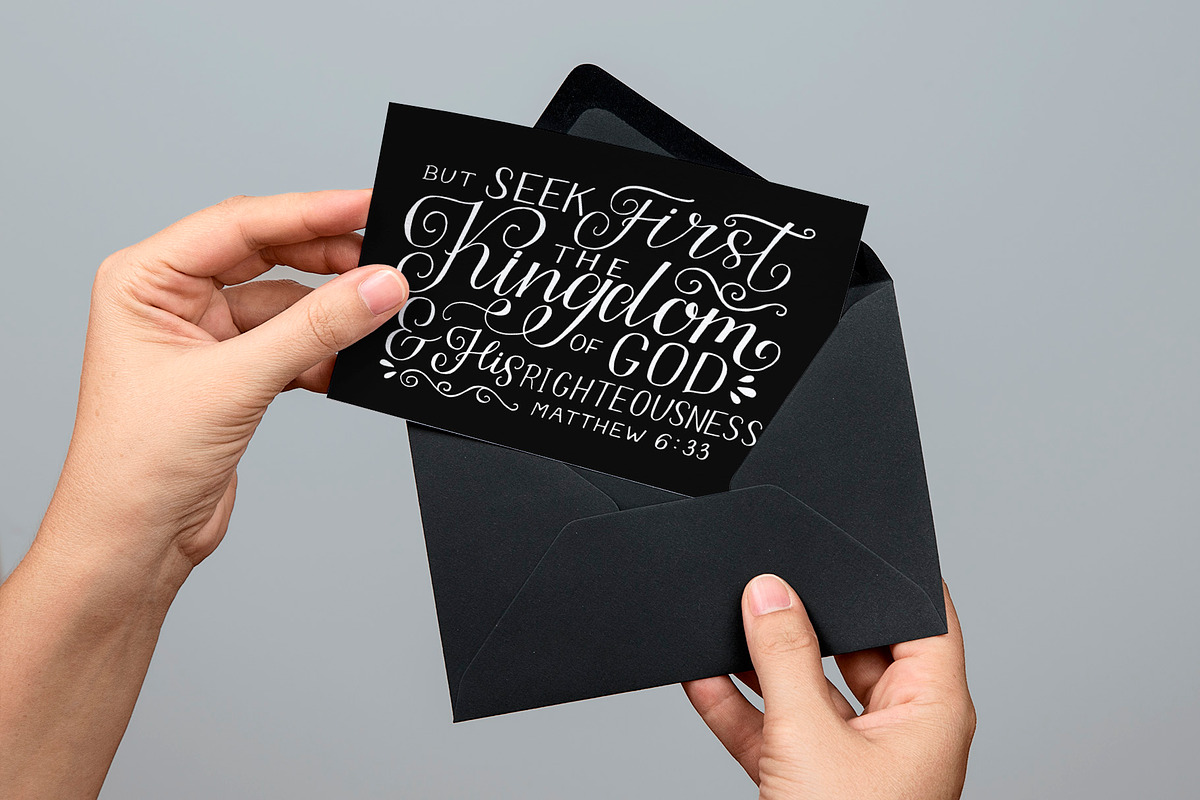 BUT SEEK First
THE
Kingdom
OF GOD
& His RIGHTEOUSNESS
MATTHEW 6:33